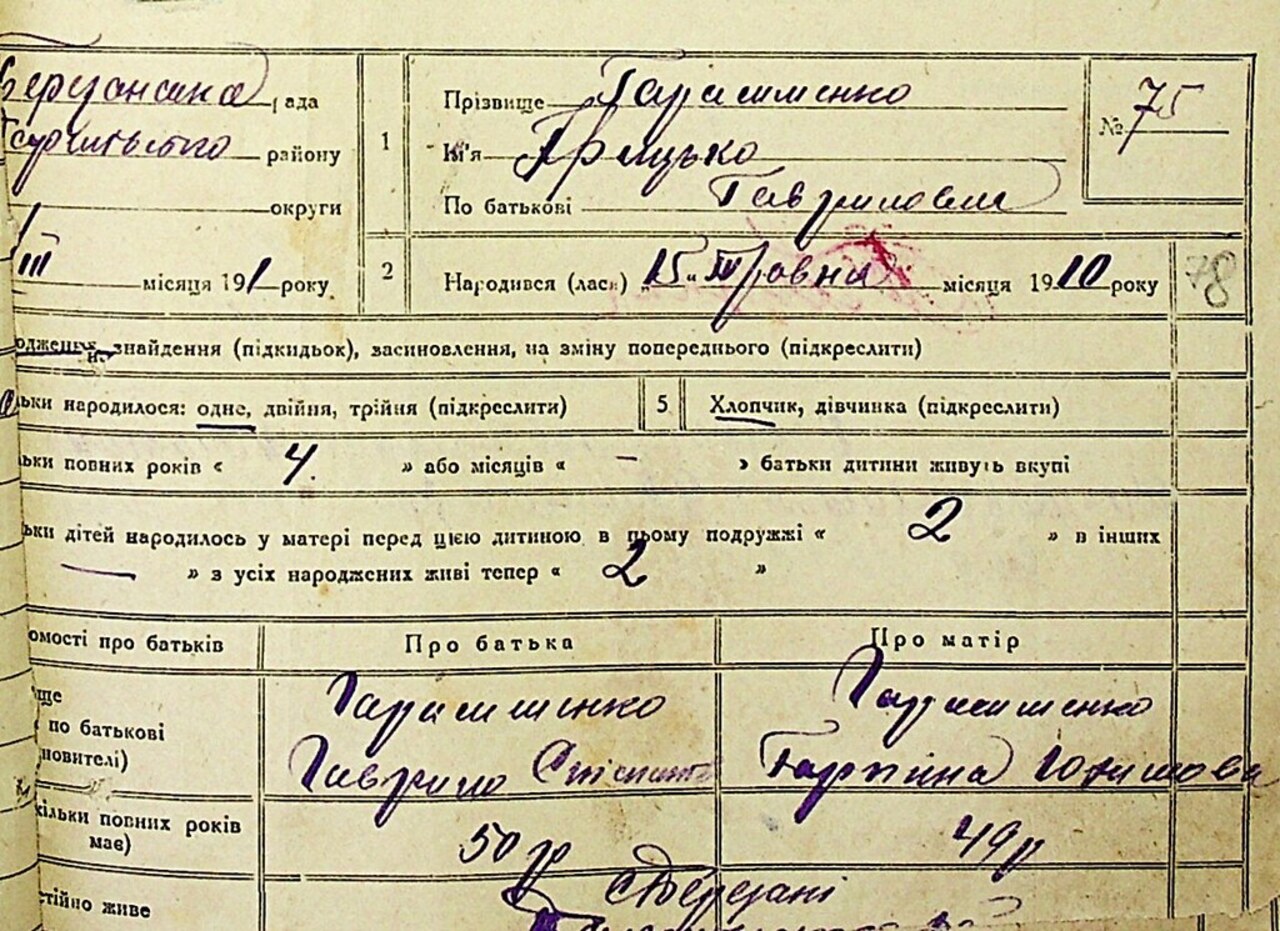 Березанська рада
району
округи
III місяця 191 року
1
Прізвище Гарашменко
Ім'я Грицько
По батькові Гаврилович
№ 75
2
Народився (лась) „15“ Травня місяця 1910 року
78
знайдення (підкидьок), засиновлення, на зміну попереднього (підкреслити)
ьки народилося: одне, двійня, трійня (підкреслити)
5
Хлопчик, дівчинка (підкреслити)
ьки повних років « 4. » або місяців « – » батьки дитини живуть вкупі
ьки дітей народилось у матері перед цією дитиною в цьому подружжі « 2 » в інших
— » з усіх народжених живі тепер « 2 »
омості про батьків
Про батька
Про матір
ще
по батькові
новителі)
Гарашменко
Гаврило
Гарашменко
Горпіна Юхимова
кільки повних років
має)
50 р
49 р
стійно живе
с Березані